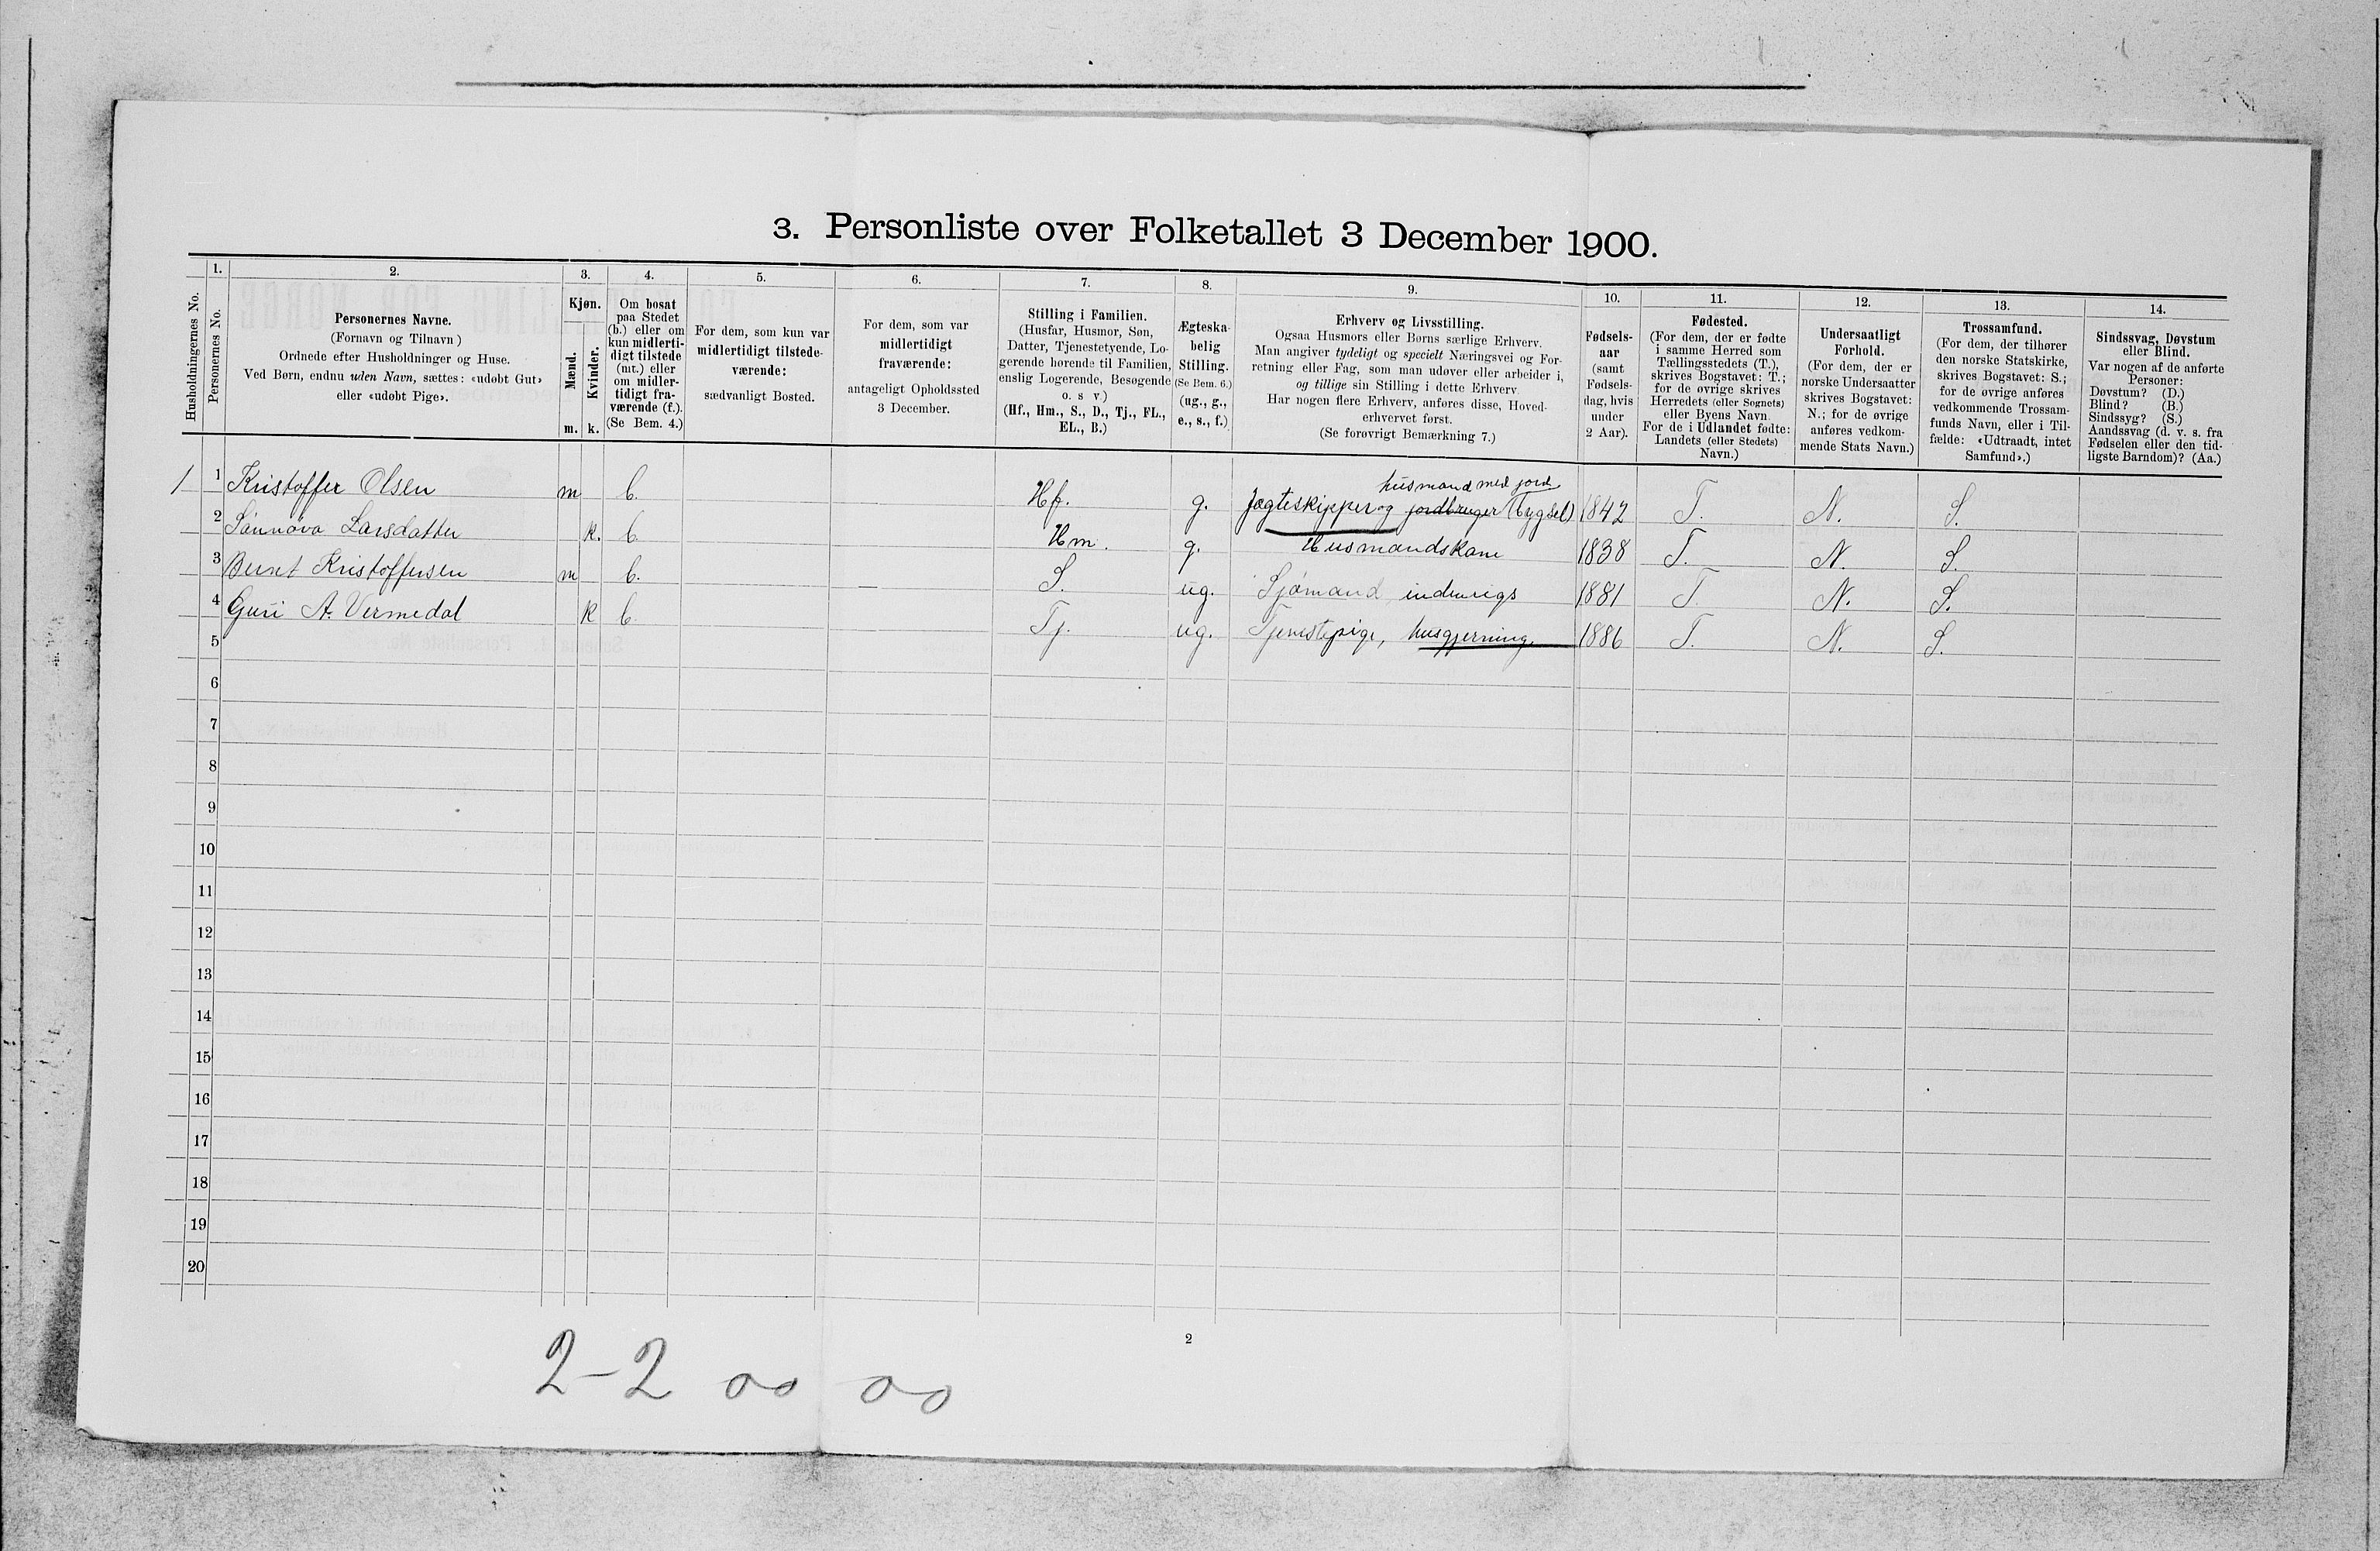 3. Personliste over Folketallet 3 December 1900.
Husholdningernes No.
1.
Personernes No.
2.
Personernes Navne.
(Fornavn og Tilnavn)
Ordnede efter Husholdninger og Huse.
Ved Børn, endnu uden Navn, sættes: «udøbt Gut»
eller «udøbt Pige».
3.
Kjøn.
Mænd.
Kvinder.
m. k.
4.
Om bosat
paa Stedet
(b.) eller om
kun midlerti-
digt tilstede
(mt.) eller
om midler-
tidigt fra-
værende (f.).
(Se Bem. 4.)
5.
For dem, som kun var
midlertidigt tilstede-
værende:
sædvanligt Bosted.
6.
For dem, som var
midlertidigt
fraværende:
antageligt Opholdssted
3 December.
7.
Stilling i Familien.
(Husfar, Husmor, Søn,
Datter, Tjenestetyende, Lo-
gerende hørende til Familien,
enslig Logerende, Besøgende
o. s v.)
(Hf., Hm., S., D., Tj., FL.,
EL., B.)
8.
Ægteska-
belig
Stilling.
(Se Bem. 6.)
(ug., g.,
e., s., f.)
9.
Erhverv og Livsstilling.
Ogsaa Husmors eller Børns særlige Erhverv.
Man angiver tydeligt og specielt Næringsvei og For-
retning eller Fag, som man udøver eller arbeider i,
og tillige sin Stilling i dette Erhverv.
Har nogen flere Erhverv, anføres disse, Hoved-
erhvervet først.
(Se forøvrigt Bemærkning 7.)
10.
Fødsels-
aar
(samt
Fødsels-
dag, hvis
under
2 Aar).
11.
Fødested.
(For dem, der er fødte
i samme Herred som
Tællingsstedets (T.),
skrives Bogstavet: T.;
for de øvrige skrives
Herredets (eller Sognets)
eller Byens Navn.
For de i Udlandet fødte:
Landets (eller Stedets)
Navn.)
12.
Undersaatligt
Forhold.
(For dem, der er
norske Undersaatter
skrives Bogstavet:
N.; for de øvrige
anføres vedkom-
mende Stats Navn.)
13.
Trossamfund.
(For dem, der tilhører
den norske Statskirke,
skrives Bogstavet: S.;
for de øvrige anføres
vedkommende Trossam-
funds Navn, eller i Til-
fælde: «Udtraadt, intet
Samfund».)
14.
Sindssvag, Døvstum
eller Blind.
Var nogen af de anførte
Personer:
Døvstum? (D.)
Blind? (B.)
Sindssyg? (S.)
Aandssvag (d. v. s. fra
Fødselen eller den tid-
ligste Barndom)? (Aa.)
husmand med jord
1 1 Kristoffer Olsen m b. Hf. g. Jægteskipper og jordbruger (bygsel) 1842 T. N. S.
2 Sønnøva Larsdatter k. b. Hm. g. Husmandskone 1838 T. N. S.
3 Bernt Kristoffersen m b. S. ug. Sjømand, indenrigs 1881 T. N. S.
4 Guri A. Vermedal k b. Tj. ug. Tjenestepige, husgjerning 1886 T. N. S.
5
6
7
8
9
10
11
12
13
14
15
16
17
18
19
20
2
2-2 00 00